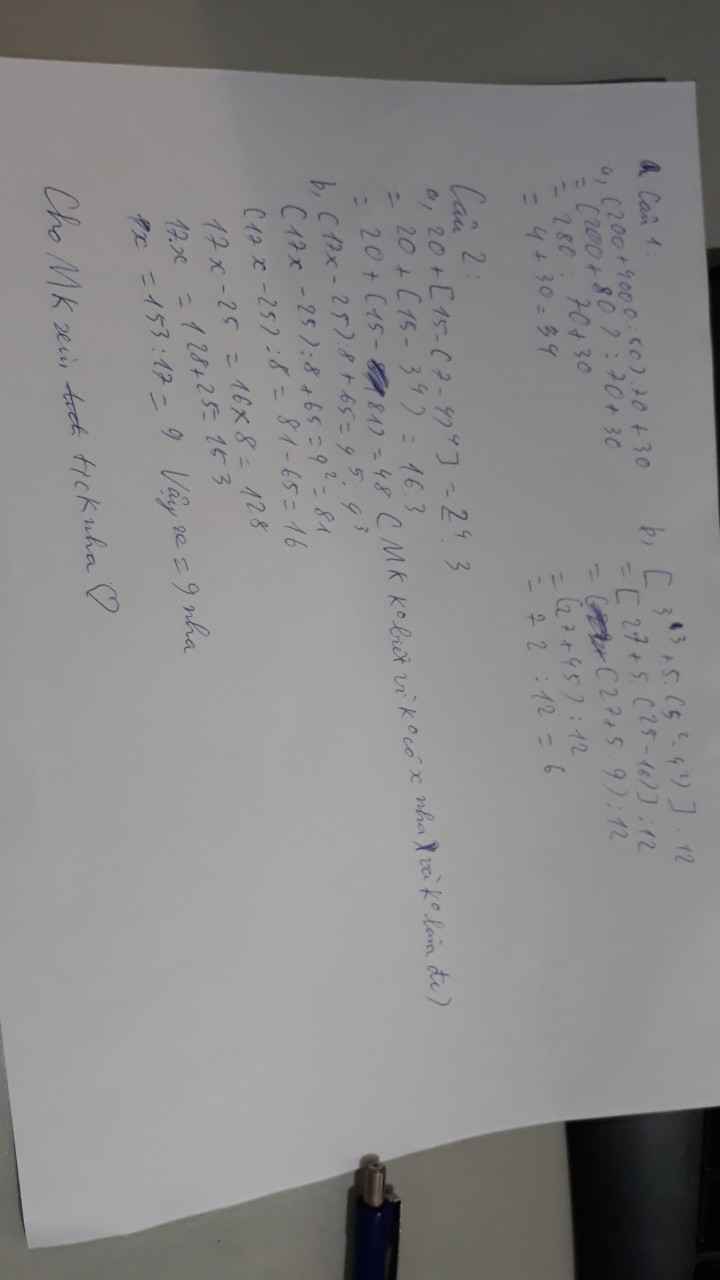 Câu 1.
a, (200+4000:50):70+30
= (200+80):70+30
= 280 : 70+30
= 4+30=34
b, [3^3+5.(5^2-4^2)]:12
= [27+5.(25-16)]:12
= (27+5 9):12
= (27+45):12
= 72 :12 = 6
Câu 2:
a, 20+[15-(7-4)^4] = 2^4.3
= 20+(15-3^4) = 16.3
= 20+(15-81)=48 (MK k° biết vì k°có x nha và k° làm đc)
b, (17x-25):8+65=9^5:9^3
(17x-25):8+65=9^2=81
(17x-25):8=81-65=16
17x-25 = 16x8=128
17x = 128+25=153
x = 153:17= 9 Vậy x = 9 nha
Cho MK xin tick nha ♡